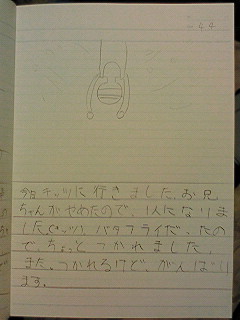 44
今日チッソに行きました。お兄
ちゃんがやめたので、1人になりま
した バタフライだったの
で、ちょっとつかれました。
また、つかれるけど、がんばり
ます。